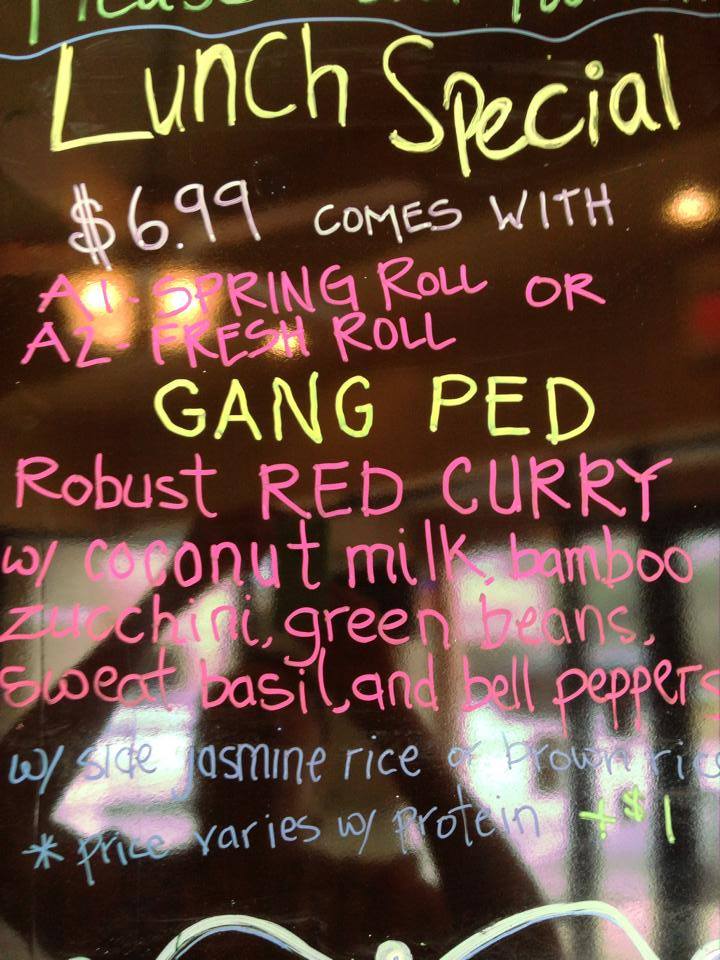 Please
Lunch Special
$6.99 COMES WITH
A1- SPRING ROLL OR
A2- FRESH ROLL
GANG PED
Robust RED CURRY
w/ coconut milk, bamboo
zucchini, green beans,
sweat basil, and bell peppers
w/ side jasmine rice or brown rice
* price varies w/ protein +$1